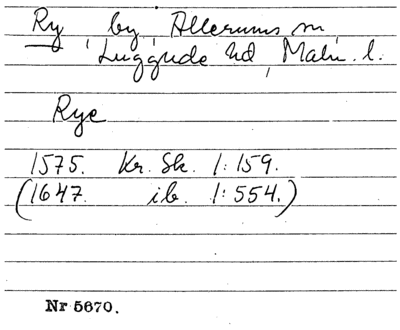 Ry, by, Allerums sn,
Luggude hd, Malm. l.
Rye
1575. Kr. Sk. 1: 159.
(1647. ib. 1: 554.)
Nr 5670.